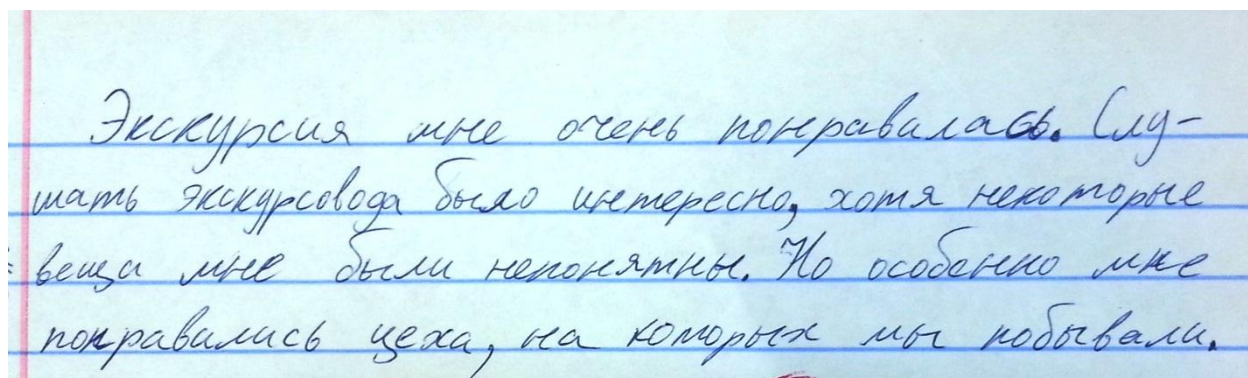 Экскурсия мне очень понравалась. Слу-
шать экскурсовода было интересно, хотя некоторые
веща мне были непонятны. Но особенно мне
понравались цеха, на которых мы побывали.